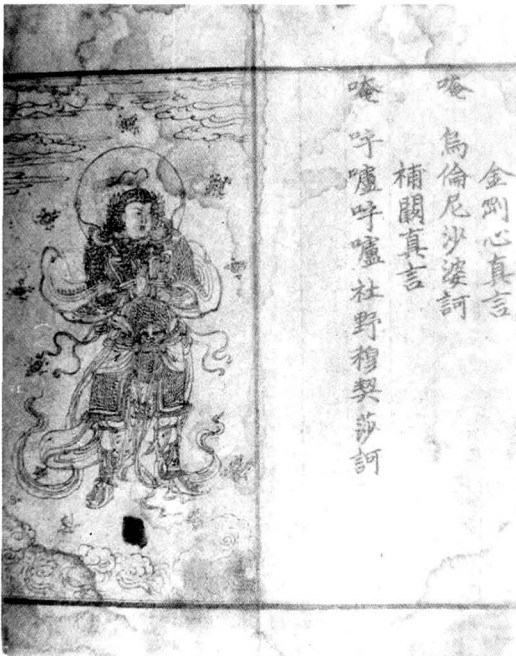 金剛心真言
唵 烏倫尼沙婆訶
補闕真言
唵 呼嚧呼嚧社野穆契莎訶